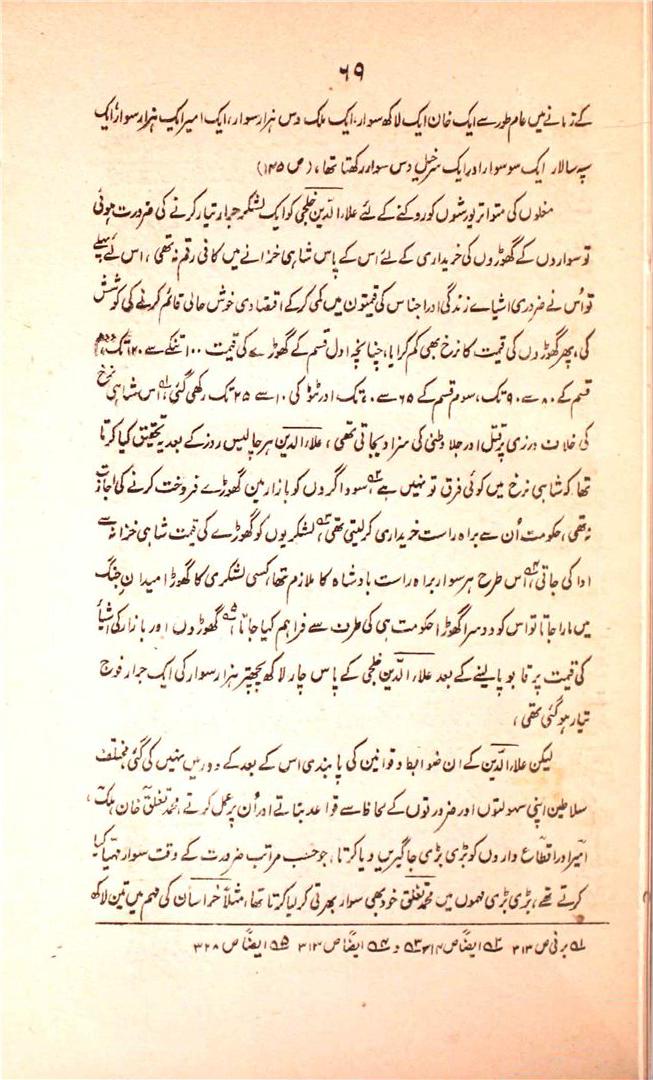 ۶۹
کے زمانے میں عام طور سے ایک خان ایک لاکھ سوار، ایک ملک دس ہزار سوار، ایک امیر ایک ہزار سوار، ایک
سپہ سالار ایک سو سوار اور ایک سرخیل دس سوار رکھتا تھا، (ص ۱۴۵)
مغلوں کی متواتر یورشوں کو روکنے کے لئے علاء الدین خلجی کو ایک لشکر جرار تیار کرنے کی ضرورت ہوئی
تو سواروں کے گھوڑوں کی خریداری کے لئے اس کے پاس شاہی خزانے میں کافی رقم نہ تھی، اس لئے پہلے
تو اُس نے ضروری اشیاے زندگی اور اجناس کی قیمتون میں کمی کرکے اقتصادی خوش حالی قائم کرنے کی کوشش
کی، پھر گھوڑوں کی قیمت کا نرخ بھی کم کرایا، چنانچہ اول قسم کے گھوڑے کی قیمت ۱۰۰ تنکے سے ۱۲۰ تک، دوم
قسم کے ۸۰ سے ۹۰ تک، سوم قسم کے ۶۵ سے ۷۰ تک اور ٹٹو کی ۱۰ سے ۲۵ تک رکھی گئی، ؎۱ اس شاہی نرخ
کی خلاف ورزی پر قتل اور جلا وطنی کی سزا دیجاتی تھی، علاء الدین ہر چالیس روز کے بعد یہ تحقیق کیا کرتا
تھا کہ شاہی نرخ میں کوئی فرق تو نہیں ہے، ؎۲ سوداگروں کو بازار مین گھوڑے فروخت کرنے کی اجازت
نہ تھی، حکومت اُن سے براہ راست خریداری کرلیتی تھی، ؎۳ لشکریوں کو گھوڑے کی قیمت شاہی خزانہ سے
ادا کی جاتی، ؎۴ اس طرح ہر سوار براہ راست بادشاہ کا ملازم تھا، کسی لشکری کا گھوڑا میدانِ جنگ
میں مارا جاتا تو اس کو دوسرا گھوڑا حکومت ہی کی طرف سے فراہم کیا جاتا، ؎۵ گھوڑوں اور بازار کی اشیأ
کی قیمت پر قابو پالینے کے بعد علاء الدین خلجی کے پاس چار لاکھ پچھتر ہزار سوار کی ایک جرار فوج
تیار ہو گئی تھی،
لیکن علاء الدین کے ان ضوابط و قوانین کی پابندی اس کے بعد کے دور میں نہیں کی گئی، مختلف
سلاطین اپنی سہولتوں اور ضرورتوں کے لحاظ سے قواعد بناتے اور اُن پر عمل کرتے، محمد تغلق خان، ملک،
امیر اور اقطاع داروں کو بڑی بڑی جاگیریں دیا کرتا، جو حسب مراتب ضرورت کے وقت سوار مہیا کیا
کرتے تھے، بڑی بڑی مہموں میں محمد تغلق خود بھی سوار بھرتی کرلیا کرتا تھا، مثلاً خراسان کی مہم میں تین لاکھ
؎۱ برنی ص ۳۱۳ ؎۲ ایضاً ص ۳۱۴ ؎۳ و ؎۴ ایضاً ص ۳۱۳ ؎۵ ایضاً ص ۳۲۸